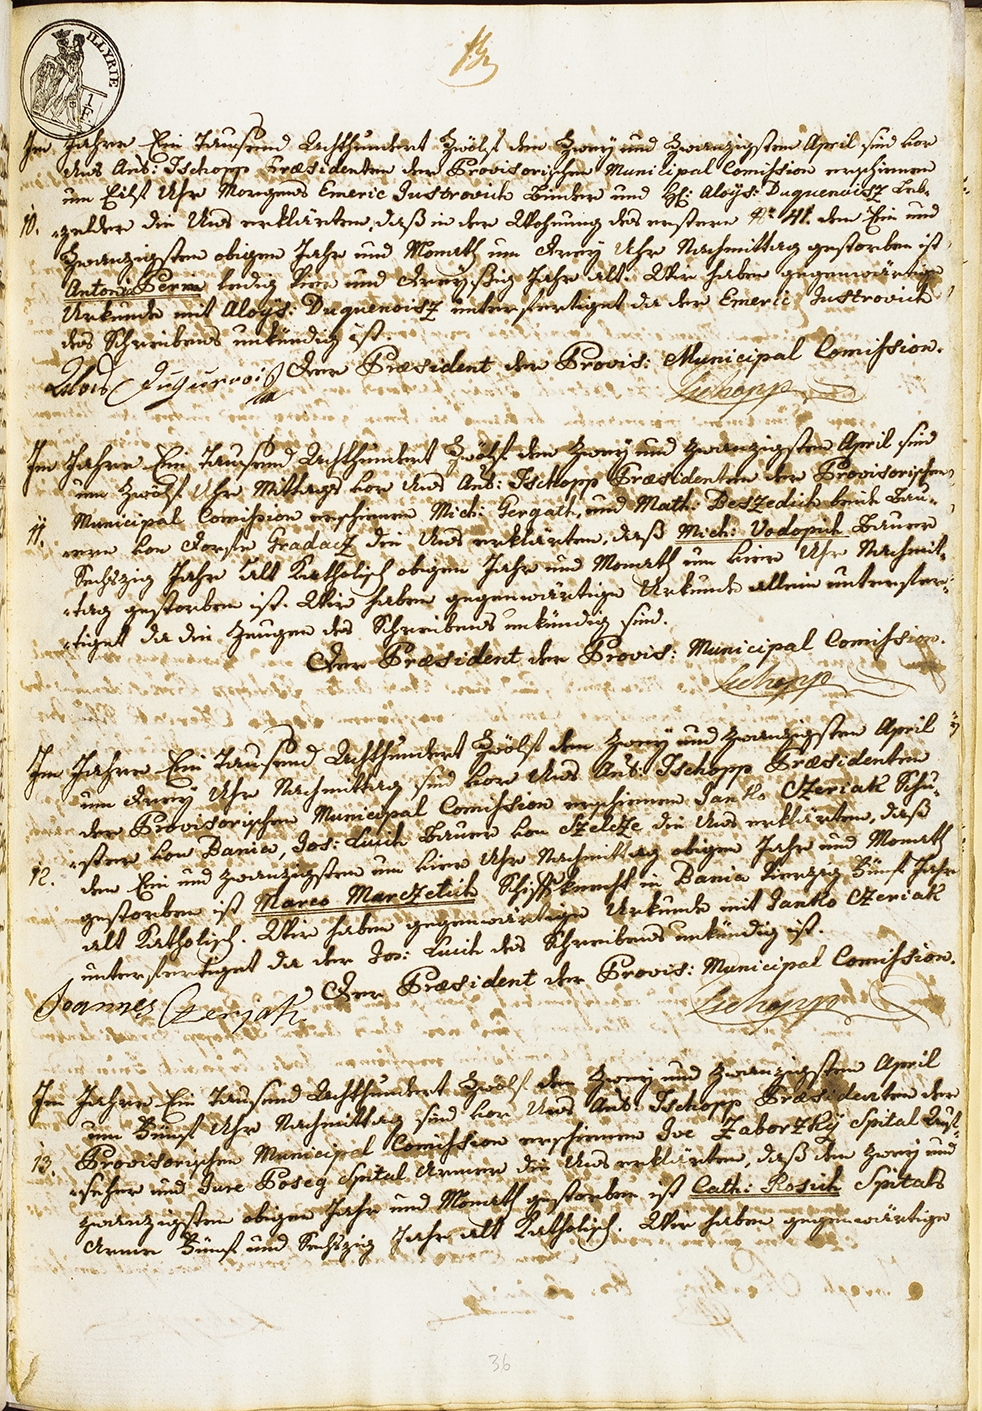 ILLYRIE
1 F
Im Jahre Ein Tausend Achthundert Zwölf den Zwey und Zwanzigsten April sind vor
Uns Ant: Tschopp Præsidenten der Provisorischen Municipal Comission erschienen
um Eilf Uhr Morgens Emeric Justrovich Binder und H: Aloys: Duquenoisz
10. die Uns erklärten, daß in der Wohnung des erstern No 41. den Ein und
Zwanzigsten obigen Jahr und Monath um Drey Uhr Nachmittag gestorben ist
Antoni Perme ledig und Dreyßig Jahr alt. Wir haben gegenwärtige
Urkunde mit Aloys: Duquenoisz unterfertiget da der Emeric Justrovich
des Schreibens unkündig ist.
Der Præsident der Provis: Municipal Comission.
Tschopp
Im Jahre Ein Tausend Achthundert Zwölf den Zwey und Zwanzigsten April sind
um Zwölf Uhr Mittags vor Uns Ant: Tschopp Præsidenten der Provisorischen
Municipal Comission erschienen Mich: Gergath, und Math: Beszedich beide Bau-
11. ern von Dorfe Gradacz die Uns erklärten, daß Mich: Vodopich Bauer
Sechszig Jahr alt Katholisch obigen Jahr und Monath um vier Uhr Nachmit-
tag gestorben ist. Wir haben gegenwärtige Urkunde allein unterfer-
tiget da die Zeugen des Schreibens unkündig sind.
Der Præsident der Provis: Municipal Comission.
Tschopp
Im Jahre Ein Tausend Achthundert Zwölf den Zwey und Zwanzigsten April
um Drey Uhr Nachmittag sind vor Uns Ant: Tschopp Præsidenten
der Provisorischen Municipal Comission erschienen Janko Czeriak Schu-
ster von Bania, Jos: Luich Bauer von Szelcze die Uns erklärten, daß
12. den Ein und Zwanzigsten um vier Uhr Nachmittag obigen Jahr und Monath
gestorben ist Marco Marczetich Schiffknecht in Bania Vierzig Fünf Jahr
alt Katholisch. Wir haben gegenwärtige Urkunde mit Janko Czeriak
unterfertiget da der Jos: Luich des Schreibens unkündig ist.
Der Præsident der Provis: Municipal Comission.
Joannes Czerjak
Tschopp
Im Jahre Ein Tausend Achthundert Zwölf den Zwey und Zwanzigsten April
um Fünf Uhr Nachmittag sind vor Uns Ant: Tschopp Præsidenten der
Provisorischen Municipal Comission erschienen Ive Zaborzky Spital Auf-
13. seher und Jure Poseg Spital Armer die Uns erklärten, daß den Zwey und
zwanzigsten obigen Jahr und Monath gestorben ist Cath: Rosich Spitals
Arme Fünf und Sechszig Jahr alt Katholisch. Wir haben gegenwärtige
36